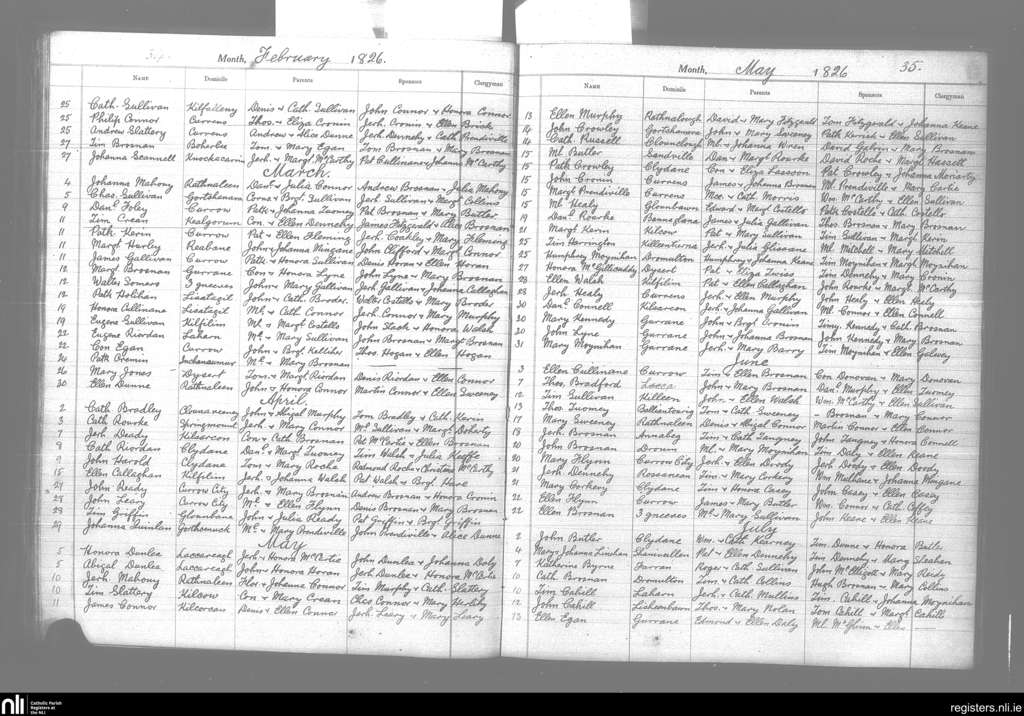 34.
Month, February 1826.
Name Domicile Parents Sponsors Clergyman
25 Cath. Sullivan Kilfalleny Denis & Cath. Sullivan John Connor & Honora Connor
25 Philip Connor Currens Thos. & Eliza Cronin Jerh. Cronin & Ellen Brick
25 Andrew Slattery Currens Andrew & Alice Dunne Jerh. Dennehy & Cath. Prendiville
27 Tim Brosnan Boherbee Tom & Mary Egan Tom Brosnan & Mary Brosnan
27 Johanna Scannell Knockacarin Jerh. & Margt. McCarthy Pat Cullinane & Johanna McCarthy
March.
4 Johanna Mahony Rathnaleen Danl. & Julia Connor Andrew Brosnan & Julia Mahony
5 Chas. Sullivan Gortshenam Corns. & Brgt. Sullivan Jerh. Sullivan & Margt. Collins
9 Danl. Foley Currow Patk. & Johanna Tuomey Pat Brosnan & Mary Butler
11 Tim Crean Kealgorum Con. & Ellen Dennehy James Fitzgerald & Alice Brosnan
11 Patk. Kerin Currow Pat & Ellen Fleming Jerh. Coakley & Mary Fleming
11 Margt. Hurley Reabane John & Johanna Wingane John Clifford & Margt. Connor
11 James Gallivan Currow Patk. & Honora Sullivan Denis Horan & Ellen Horan
12 Margt. Brosnan Gurrane Con & Honora Lyne John Lyne & Mary Brosnan
12 Walter Somers 3 gneeves John & Mary Gallivan Jerh. Gallivan & Johanna Callaghan
12 Patk. Holihan Lisategil John & Cath. Broder. Walter Costello & Mary Broder
14 Honora Cullinane Lisategil Ml. & Cath Connor Jerh. Connor & Mary Murphy
19 Eugene Sullivan Kilfilim Ml & Margt. Costello John Stack & Honora Walsh
22 Eugene Riordan Laharn Wm. & Mary Sullivan John Brosnan & Margt. Brosnan
22 Con Egan Currow John & Brgt. Kelliher Thos. Hogan & Ellen Hogan
26 Patk. Cremin Inchancumur Wm. & Mary Brosnan
26 Mary Jones Dysert Tom & Margt. Riordan Denis Riordan & Ellen Connor
30 Ellen Dunne Rathnaleen John & Honora Connor Martin Connor & Ellen Sweeney
April.
2 Cath Bradley Clounaveney John & Abigal Murphy Tom Bradley & Cath. Kerin
3 Cath Rourke Springmount Jerh. & Mary Connor Ml. Sullivan & Margt. Doherty
7 Jerh. Deady Kilsarcon Con & Cath Brosnan Pat McCartie & Ellen Brosnan
8 Cath Riordan Clydane Danl. & Margt. Tuomey Tim Walsh & Julia Keeffe
9 John Harold Clydane Tom & Mary Roche Redmond Roche & Christina McCarthy
15 Ellen Callaghan Kilfilim Jerh. & Johanna Walsh Pat Walsh & Brgt. Hare
24 John Ready Currow City Jerh. & Mary Brosnan Andrew Brosnan & Honora Cronin
24 John Leary Currow City Wm. & Ellen Flynn Denis Brosnan & Mary Brosnan
28 Tim Griffin Glounbane John & Julia Ready Pat Griffin & Brgt. Griffin
29 Johanna Quinlan Gortnamuck Wm. & Mary Prendiville John Prendiville & Alice Dunne
May
5 Honora Dunlea Laccareagh Jerh. & Honora McCartie John Dunlea & Johanna Daly
5 Abigal Dunlea Laccareagh John & Honora Horan Jerh. Dunlea & Honora McCartie
10 Jerh. Mahony Rathnaleen Flor & Johanna Connor Tim Murphy & Cath. Slattery
10 Tim Slattery Kilcow Con & Mary Crean Chas Connor & Mary Herlihy
11 James Connor Kilcorcan Denis & Ellen Connor Jerh. Leary & Mary Leary
Month, May 1826 35.
Name Domicile Parents Sponsors Clergyman
13 Ellen Murphy Rathnalough David & Mary Fitzgerald Tom Fitzgerald & Johanna Keane
14 John Crowley Gortshanavu John & Mary Sweeney Patk Kerrisk & Ellen Sullivan
14 Cath. Russell Clounclogh Ml. & Johanna Wren David Galvin & Mary Brosnan
15 Ml Butler Sandville Dan & Margt Rourke David Roche & Margt Hassell
15 Path Crowley Clydane Con & Eliza Fassoon Pat Crowley & Johanna Moriarty
15 John Cronin Currens James & Johanna Brosnan Ml. Prendiville & Mary Carlie
15 Margt Prendiville Currens Mce. & Cath Morris Wm. McCarthy & Ellen Sullivan
15 Ml Healy Glounbawn Edward & Margt. Costello Patk Costello & Cath. Costello
19 Danl. Rourke Banneglana James & Julia Gallivan Thos. Brosnan & Mary Brosnan
21 Margt Kerin Kilcow Pat & Mary Sullivan Tim Sullivan & Margt. Kerin
25 Tim Harrington Killenterna Jerh. & Julia Glissane Ml. Mitchell & Mary Mitchell
25 Humphrey Moynihan Dromulton Humphrey & Johanna Keane Tim Moynihan & Margt Moynihan
27 Honora McGillicuddy Dysert Pat & Eliza Twiss Tim Dennehy & Mary Cronin
28 Ellen Walsh Kilfilim Pat & Ellen Callaghan John Rourke & Margt. McCarthy
28 Jerh. Healy Currens Jerh. & Ellen Murphy John Healy & Ellen Healy
30 Danl. Connell Kilsarcon Jerh. & Johanna Gallivan Ml. Connor & Ellen Connell
30 Mary Kennedy Gurrane John & Brgt Cronin Timy. Kennedy & Cath Brosnan
30 John Lyne Gurrane John & Johanna Brosnan John Kennedy & Mary Brosnan
31 Mary Moynihan Gurrane Jerh. & Mary Barry Tim Moynihan & Ellen Galway
June
3 Ellen Cullinane Currow Tim & Ellen Brosnan Con Donovan & Mary Donovan
7 Thos. Bradford Lacca John & Mary Brosnan Danl. Murphy & Ellen Tuomey
12 Tim Sullivan Killeen John & Ellen Walsh Wm. McCarthy & Ellen Sullivan
13 Thos. Tuomey Ballantourig Tom & Cath Sweeney – Brosnan & Mary Connor
17 Mary Sweeney Rathnaleen Denis & Abigal Connor Martin Connor & Ellen Connor
18 Jerh. Brosnan Annabeg Tim & Cath Tangney John Tangney & Honora Connell
20 John Brosnan Dromin Ml. & Mary Moynihan Tim Daly & Ellen Keane
20 Mary Flynn Currow City Jerh. & Ellen Doody Jerh Doody & Ellen Doody
21 Jerh. Dennehy Rossanean Tim & Mary Corkery Wm Mulhane & Johanna Mungane
21 Mary Corkery Clydane Tim & Honora Casey John Casey & Ellen Casey
22 Ellen Flynn Currow James & Mary Butler Wm. Connor & Cath Coffey
22 Ellen Brosnan 3 gneeves Wm. & Mary Sullivan John Keane & Ellen Keane
July
2 John Butler Clydane Wm. & Cath Kearney Tim Dunne & Honora Butler
4 Mary & Johanna Linehan Shanvallen Pat & Ellen Dennehy Tim Dennehy & Mary Sheahan
7 Katherine Byrne Farran Roger & Cath Sullivan John McElligott & Mary Reidy
10 Cath. Brosnan Dromulton Tim & Cath Collins Hugh Brosnan & Mary Collins
10 Tim Cahill Laharn Jerh. & Cath Mullins Tim Cahill & Johanna Moynihan
12 John Cahill Lisheenbawn Thos. & Mary Nolan Tom Cahill & Margt Cahill
13 Ellen Egan Gurrane Edmond & Ellen Daly Ml. McGlinn & Ellen
nli Catholic Parish Registers at the NLI
registers.nli.ie